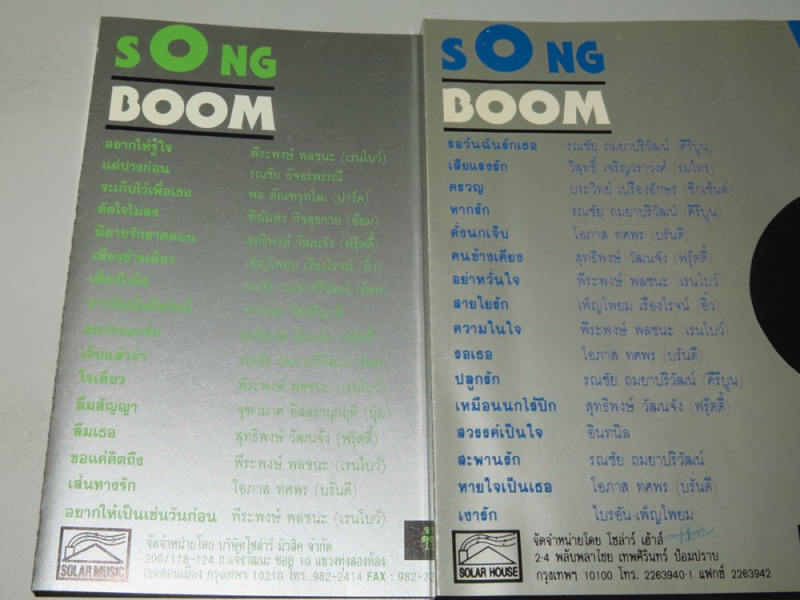 SONG
BOOM
อยากให้รู้ใจ พีระพงษ์ พลชนะ (เรนโบว์)
แต่ปางก่อน รณชัย
จะเก็บไว้เพื่อเธอ พล ตัณฑวุฑโฒ (ปาร์ค)
ตัดใจไม่ลง กิจสุขกาย (อ้อม)
นิยายรักขาดตอน สุทธิพงษ์ วัฒนจัง (ฟรุ๊ตตี้)
เพียงข้างเดียว เพ็ญโพยม เรืองโรจน์ (อิ๋ว)
รณชัย ถมยาปริวัฒน์
เจ็บแล้วจำ รณชัย ถมยาปริวัฒน์
ใจเดียว พีระพงษ์ พลชนะ (เรนโบว์)
ลืมสัญญา
ลืมเธอ สุทธิพงษ์ วัฒนจัง (ฟรุ๊ตตี้)
ขอแค่คิดถึง พีระพงษ์ พลชนะ (เรนโบว์)
เส้นทางรัก โอภาส ทศพร (บรั่นดี)
อยากให้เป็นเช่นวันก่อน พีระพงษ์ พลชนะ (เรนโบว์)
SOLAR MUSIC
จัดจำหน่ายโดย บริษัทโซล่าร์ มิวสิค จำกัด
200/118-124 ถ.แจ้งวัฒนะ ซอย 10 แขวงทุ่งสองห้อง
เขตดอนเมือง กรุงเทพฯ 10210 โทร. 982-2414 FAX : 982-22
SONG
BOOM
รอวันฉันรักเธอ รณชัย ถมยาปริวัฒน์ (คีรีบูน)
เสียแรงรัก วิสุทธิ์ เจริญวราวงศ์ (ร่มไทร)
ครวญ ประวิทย์ เปรื่องอักษร (ซิกเซ้นต์)
หากรัก รณชัย ถมยาปริวัฒน์ (คีรีบูน)
ดั่งนกเจ็บ โอภาส ทศพร (บรั่นดี)
คนข้างเคียง สุทธิพงษ์ วัฒนจัง (ฟรุ๊ตตี้)
อย่าหวั่นใจ พีระพงษ์ พลชนะ (เรนโบว์)
สายใยรัก เพ็ญโพยม เรืองโรจน์ (อิ๋ว)
ความในใจ พีระพงษ์ พลชนะ (เรนโบว์)
รอเธอ โอภาส ทศพร (บรั่นดี)
ปลูกรัก รณชัย ถมยาปริวัฒน์ (คีรีบูน)
เหมือนนกไร้ปีก สุทธิพงษ์ วัฒนจัง (ฟรุ๊ตตี้)
สวรรค์เป็นใจ อินทนิล
สะพานรัก รณชัย ถมยาปริวัฒน์
หายใจเป็นเธอ โอภาส ทศพร (บรั่นดี)
เงารัก ไบรอัน-เพ็ญโพยม
SOLAR HOUSE
จัดจำหน่ายโดย โซล่าร์ เฮ้าส์
2-4 พลับพลาไชย เทพศิรินทร์ ป้อมปราบ
กรุงเทพฯ 10100 โทร. 2263940-1 แฟกซ์ 2263942